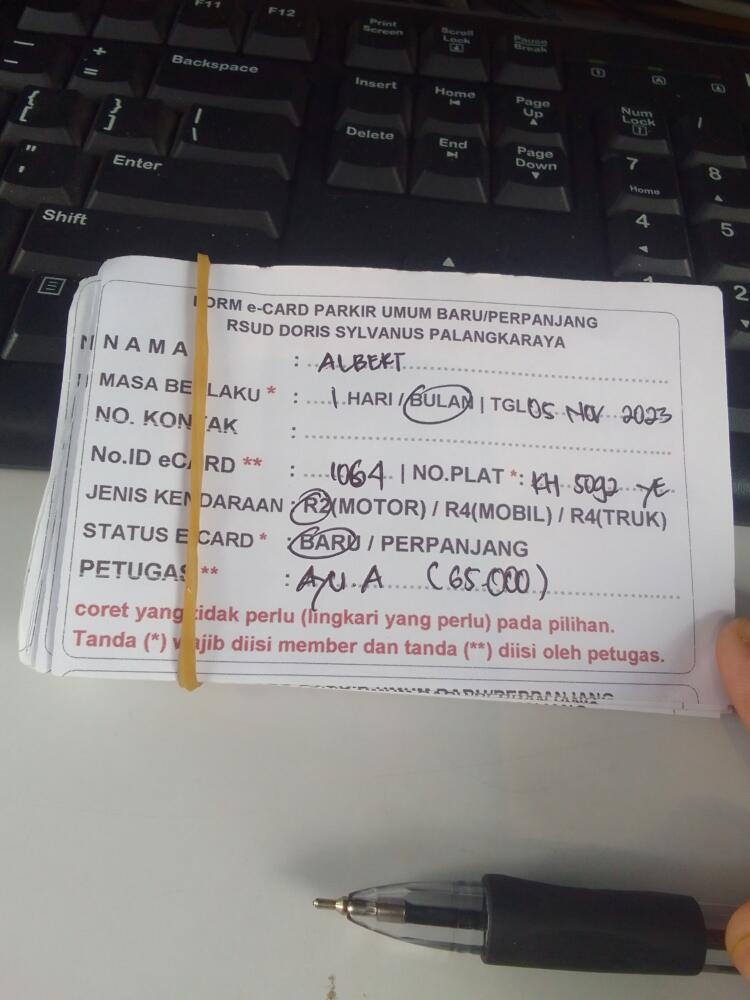 F11 F12 Print Screen Scroll Lock Pause Break
Backspace Insert Home Page Up Num Lock /
Enter Delete End Page Down 7 Home 8
Shift 4 5
1 2
FORM e-CARD PARKIR UMUM BARU/PERPANJANG
RSUD DORIS SYLVANUS PALANGKARAYA
N A M A : ALBERT
MASA BERLAKU * : 1 HARI / BULAN | TGL 05 NOV 2023
NO. KONTAK :
No.ID eCARD ** : 1064 | NO.PLAT *: KH 5092 YE
JENIS KENDARAAN : R2(MOTOR) / R4(MOBIL) / R4(TRUK)
STATUS E CARD * : BARU / PERPANJANG
PETUGAS ** : AYU A (65.000)
coret yang tidak perlu (lingkari yang perlu) pada pilihan.
Tanda (*) wajib diisi member dan tanda (**) diisi oleh petugas.